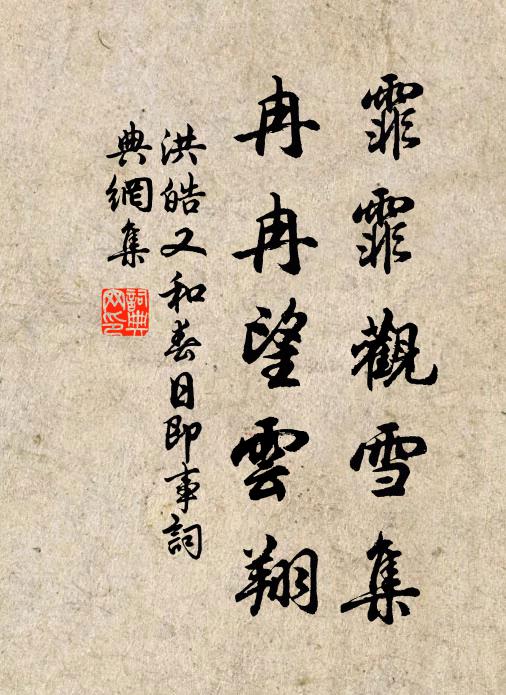 霏霏觀雪集
冉冉望雲翔
洪皓又和春日即事詞
典網集
詞典網印